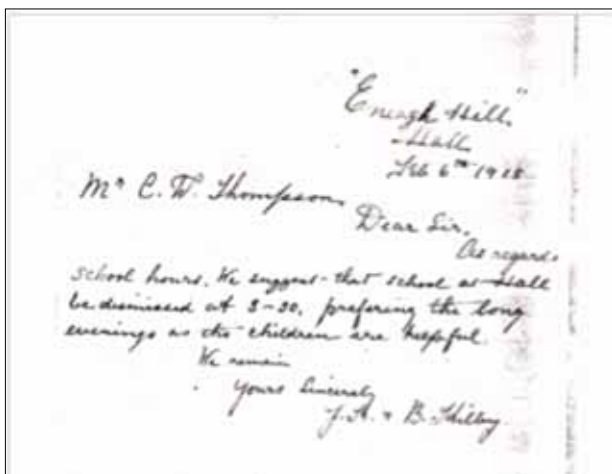 "Eneagh Hill"
Hall
Feb 6th 1918
Mr C. W. Thompson,
Dear Sir,
As regards
school hours. We suggest that school at Hall
be dismissed at 3-30, prefering the long
evenings as the children are helpful.
We remain
Yours Sincerely
J. A. & B.